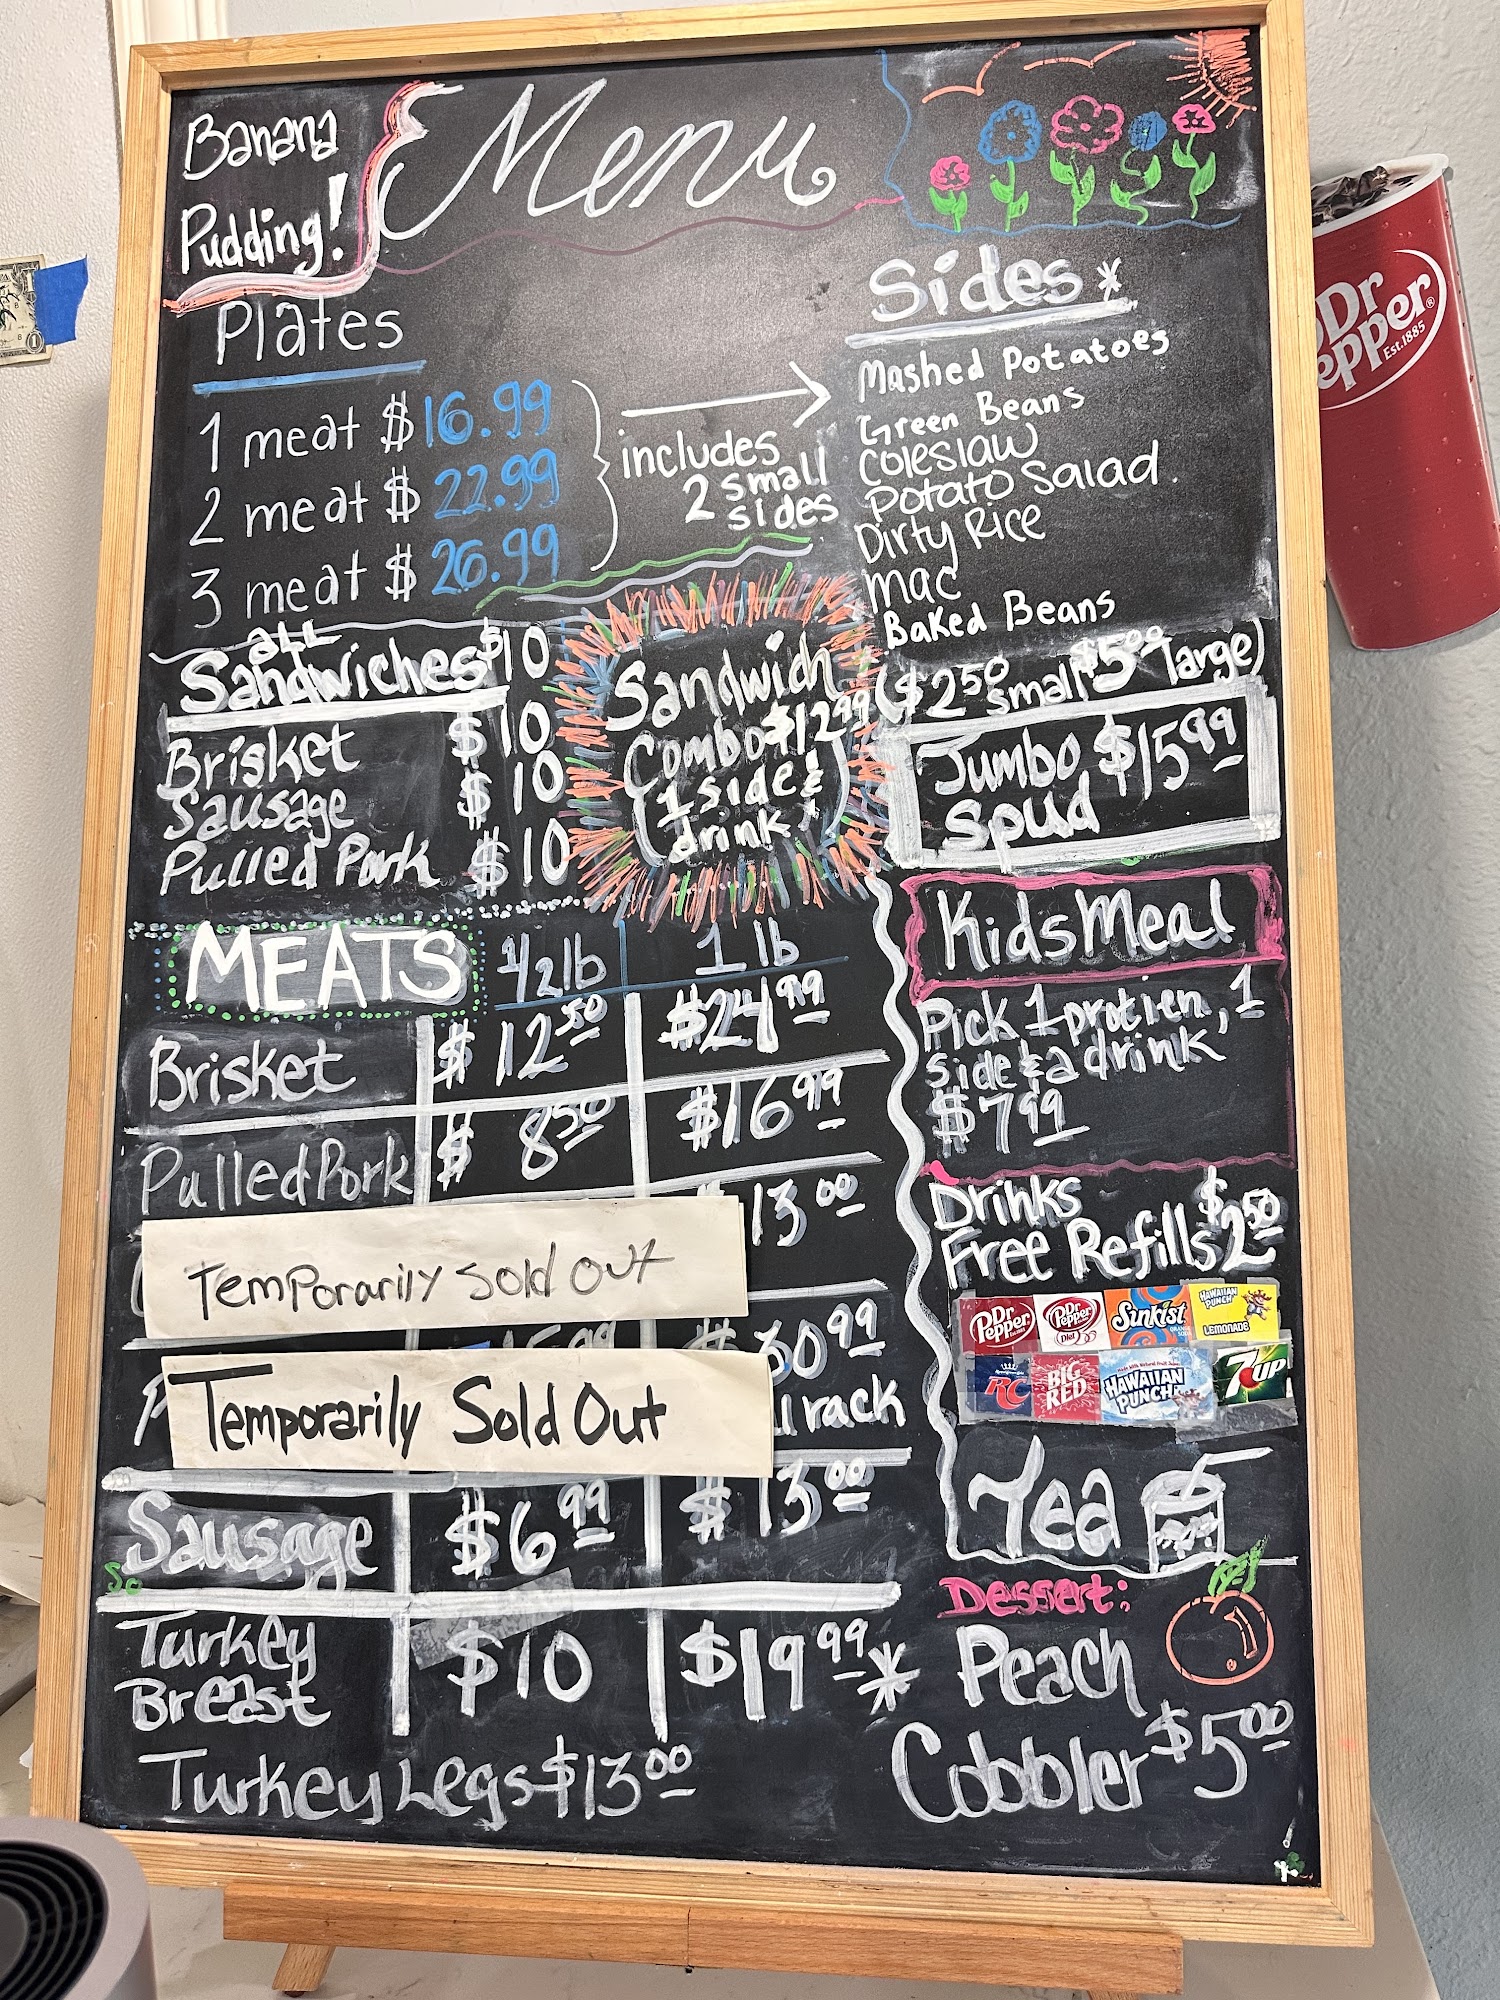 Banana
Pudding!
Menu
Plates
1 meat $16.99
2 meat $22.99
3 meat $26.99
includes
2 small
sides
Sides *
Mashed Potatoes
Green Beans
Coleslaw
Potato Salad.
Dirty Rice
Mac
Baked Beans
($2.50 small $5.00 large)
ALL
Sandwiches $10
Brisket $10
Sausage $10
Pulled Pork $10
Sandwich
Combo $12.99
1 side &
drink
Jumbo $15.99
Spud
Kids Meal
Pick 1 protien, 1
side & a drink
$7.99
MEATS 1/2 lb 1 lb
Brisket $12.50 $24.99
Pulled Pork $8.50 $16.99
13.00
Temporarily Sold Out
$30.99
1 rack
Temporarily Sold Out
Sausage $6.99 $13.00
Turkey
Breast $10 $19.99 *
Turkey Legs $13.00
Drinks
Free Refills $2.50
Dr Pepper
Dr Pepper
Diet
Sunkist
HAWAIIAN PUNCH
LEMONADE
RC
BIG RED
HAWAIIAN PUNCH
7UP
Tea
Dessert:
Peach
Cobbler $5.00
Dr
Pepper®
Est. 1885